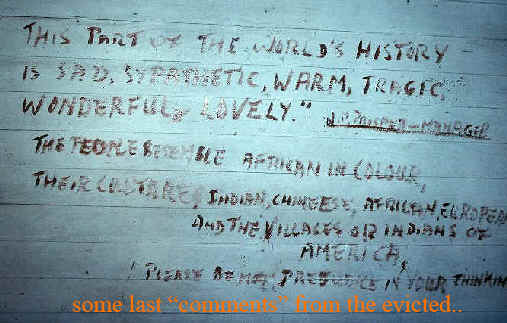 THIS PART OF THE WORLD'S HISTORY
IS SAD, SYPATHETIC, WARM, TRAGIC,
WONDERFUL, LOVELY."
MANAGER
THE PEOPLE RESEMBLE AFRICAN IN COLOUR,
THEIR INDIAN, CHINEESE, AFRICAN, EUROPEAN
AND THE VILLAGES OR INDIANS OF
AMERICA,
PLEASE PREJUDICE IN YOUR THINKIN
some last “comments” from the evicted..